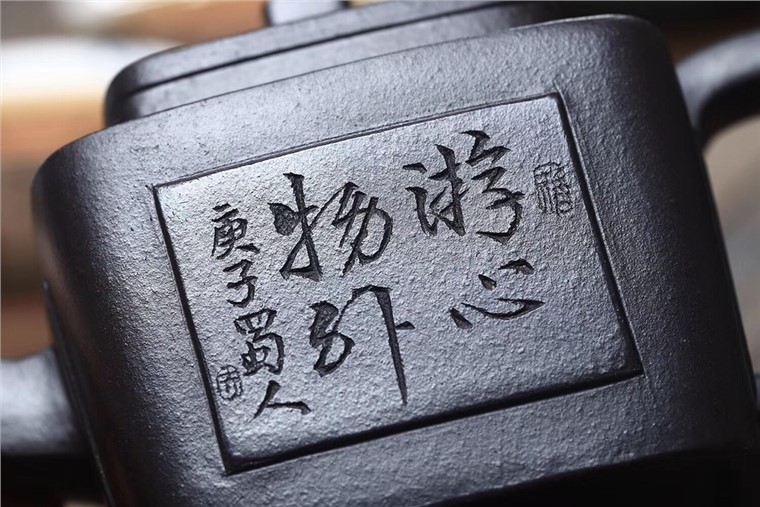 游心
物外
庚子蜀人